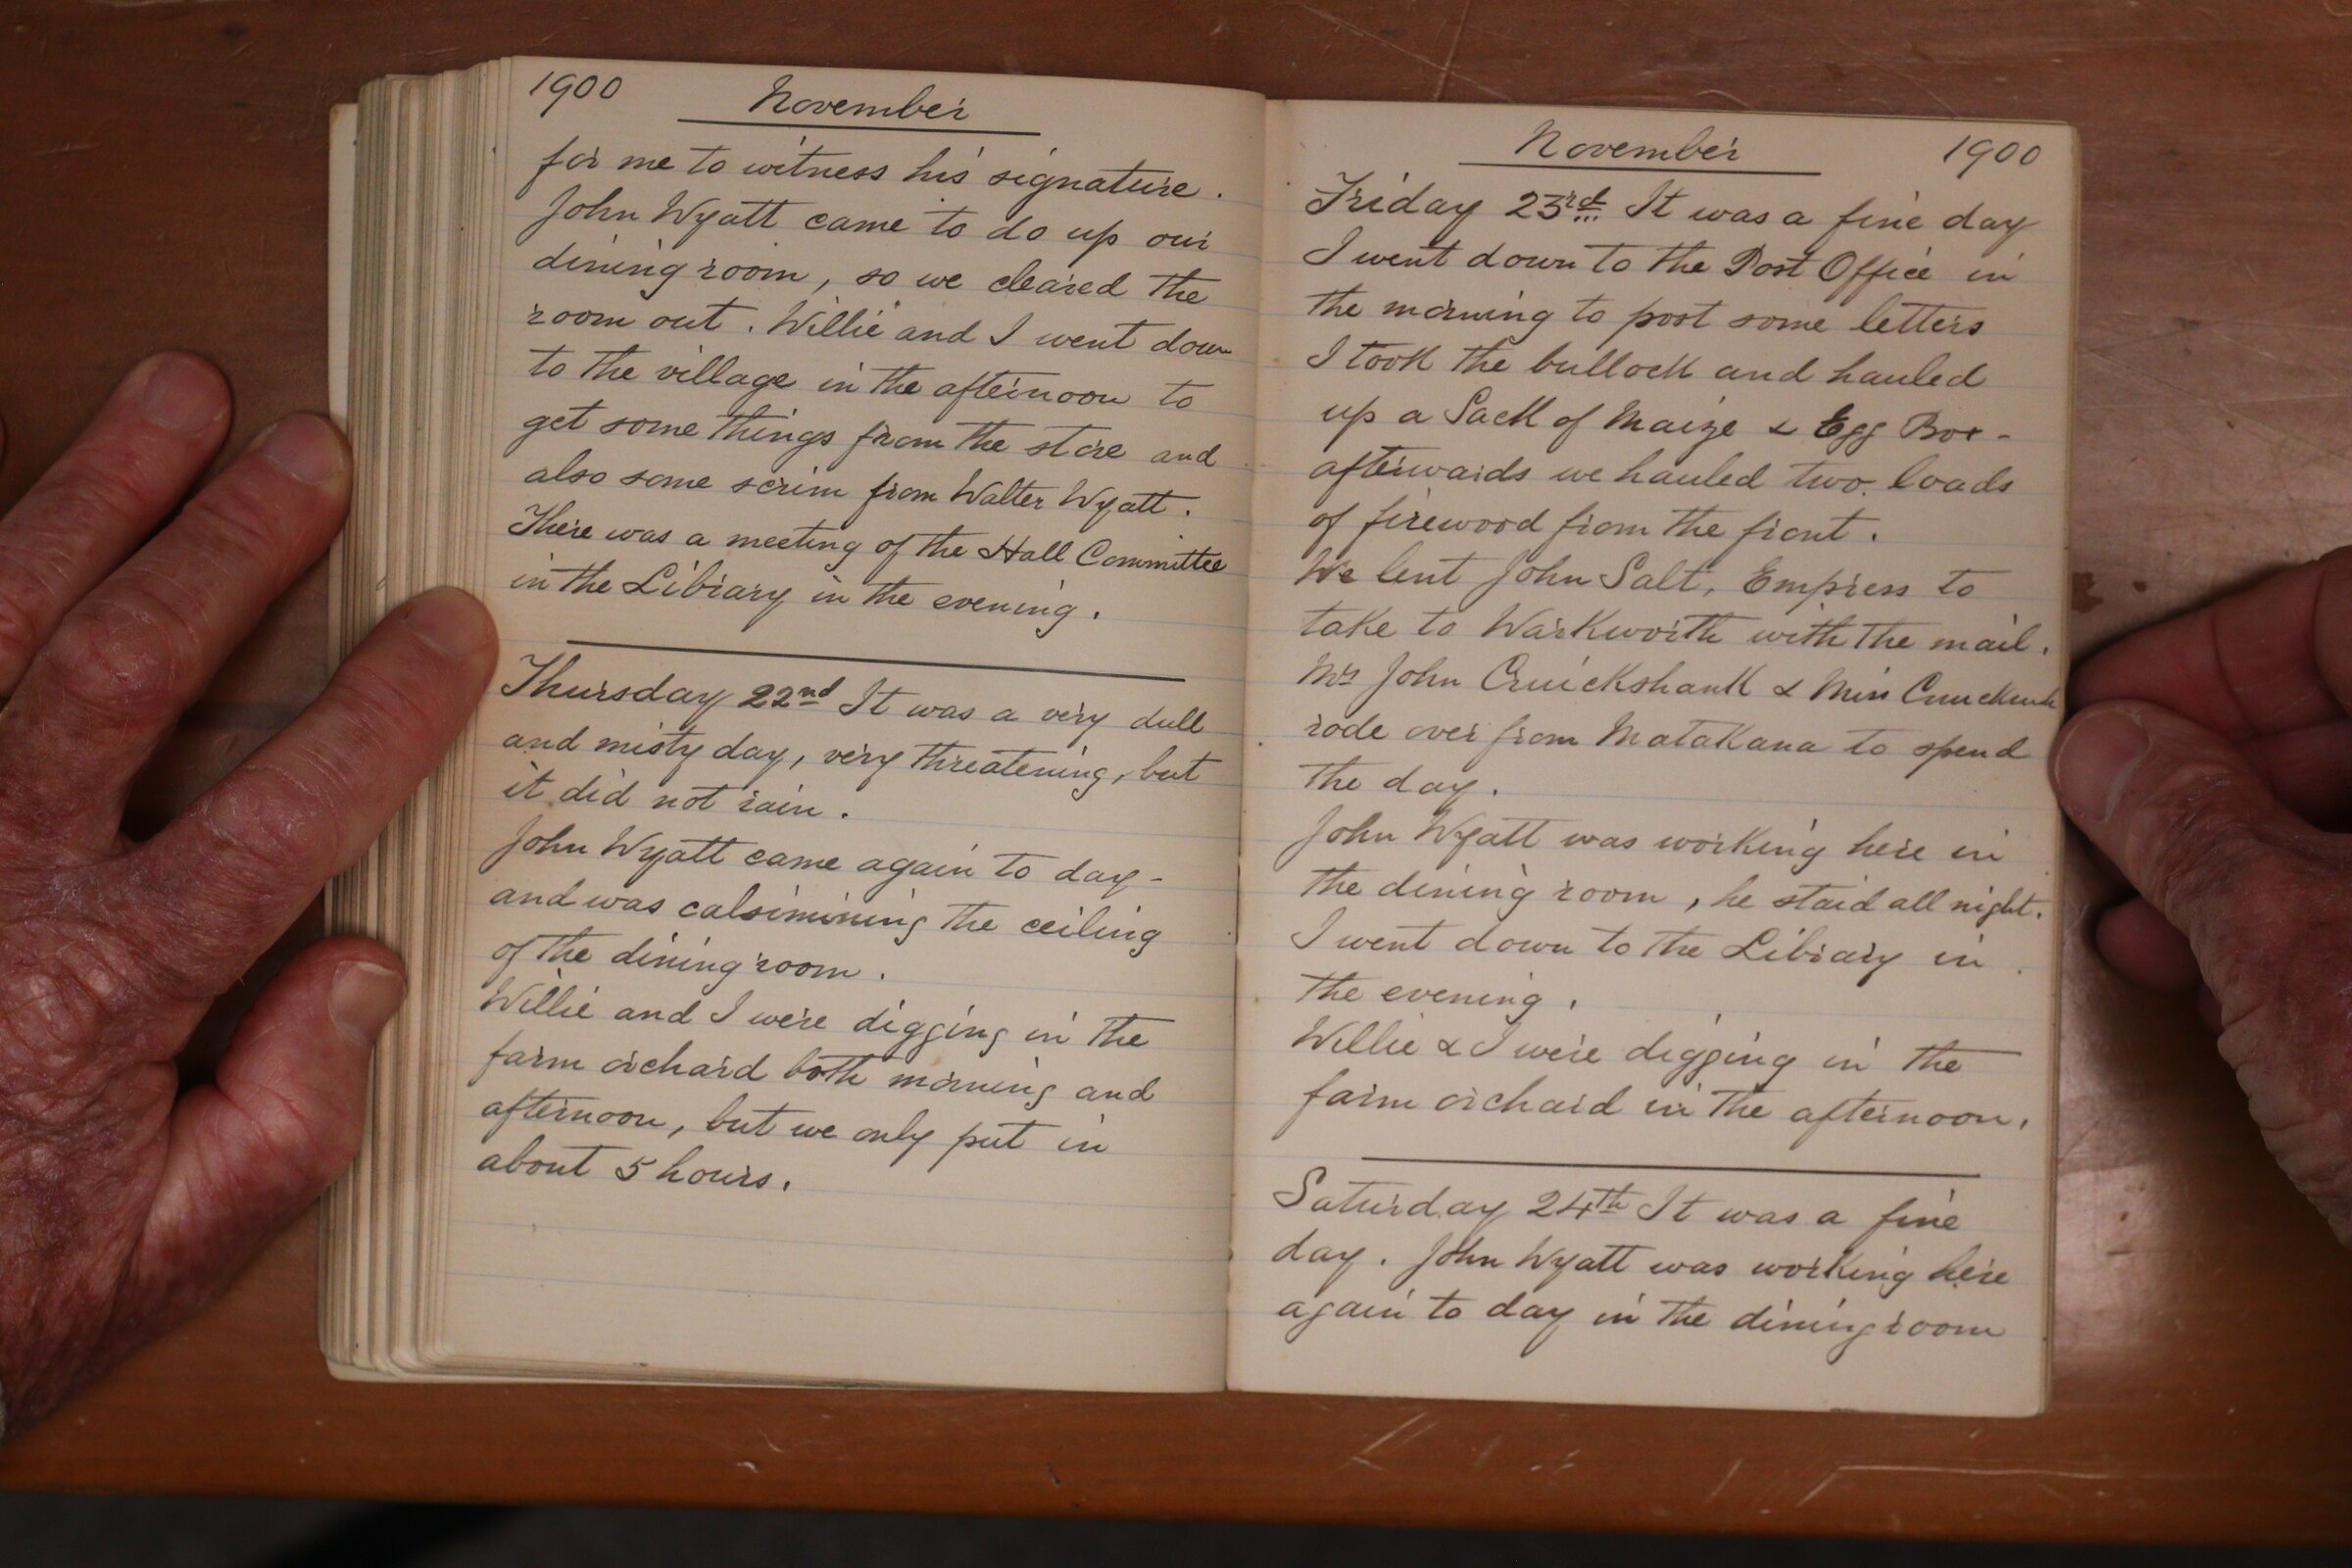 1900
November
for me to witness his signature.
John Wyatt came to do up our
dining room, so we cleared the
room out. Willie and I went down
to the village in the afternoon to
get some things from the store and
also some scrim from Walter Wyatt.
There was a meeting of the Hall Committee
in the Library in the evening.
Thursday 22nd It was a very dull
and misty day, very threatening, but
it did not rain.
John Wyatt came again to day-
and was calsimining the ceiling
of the dining room.
Willie and I were digging in the
farm orchard both morning and
afternoon, but we only put in
about 5 hours.
November 1900
Friday 23rd It was a fine day
I went down to the Post Office in
the morning to post some letters
I took the bullock and hauled
up a Sack of Maize & Egg Box-
afterwards we hauled two loads
of firewood from the front.
We lent John Salt, Empress to
take to Warkworth with the mail.
Mrs John Cruickshank & Miss
rode over from Matakana to spend
the day.
John Wyatt was working here in
the dining room, he staid all night.
I went down to the Library in
the evening.
Willie & I were digging in the
farm orchard in the afternoon.
Saturday 24th It was a fine
day. John Wyatt was working here
again to day in the dining room